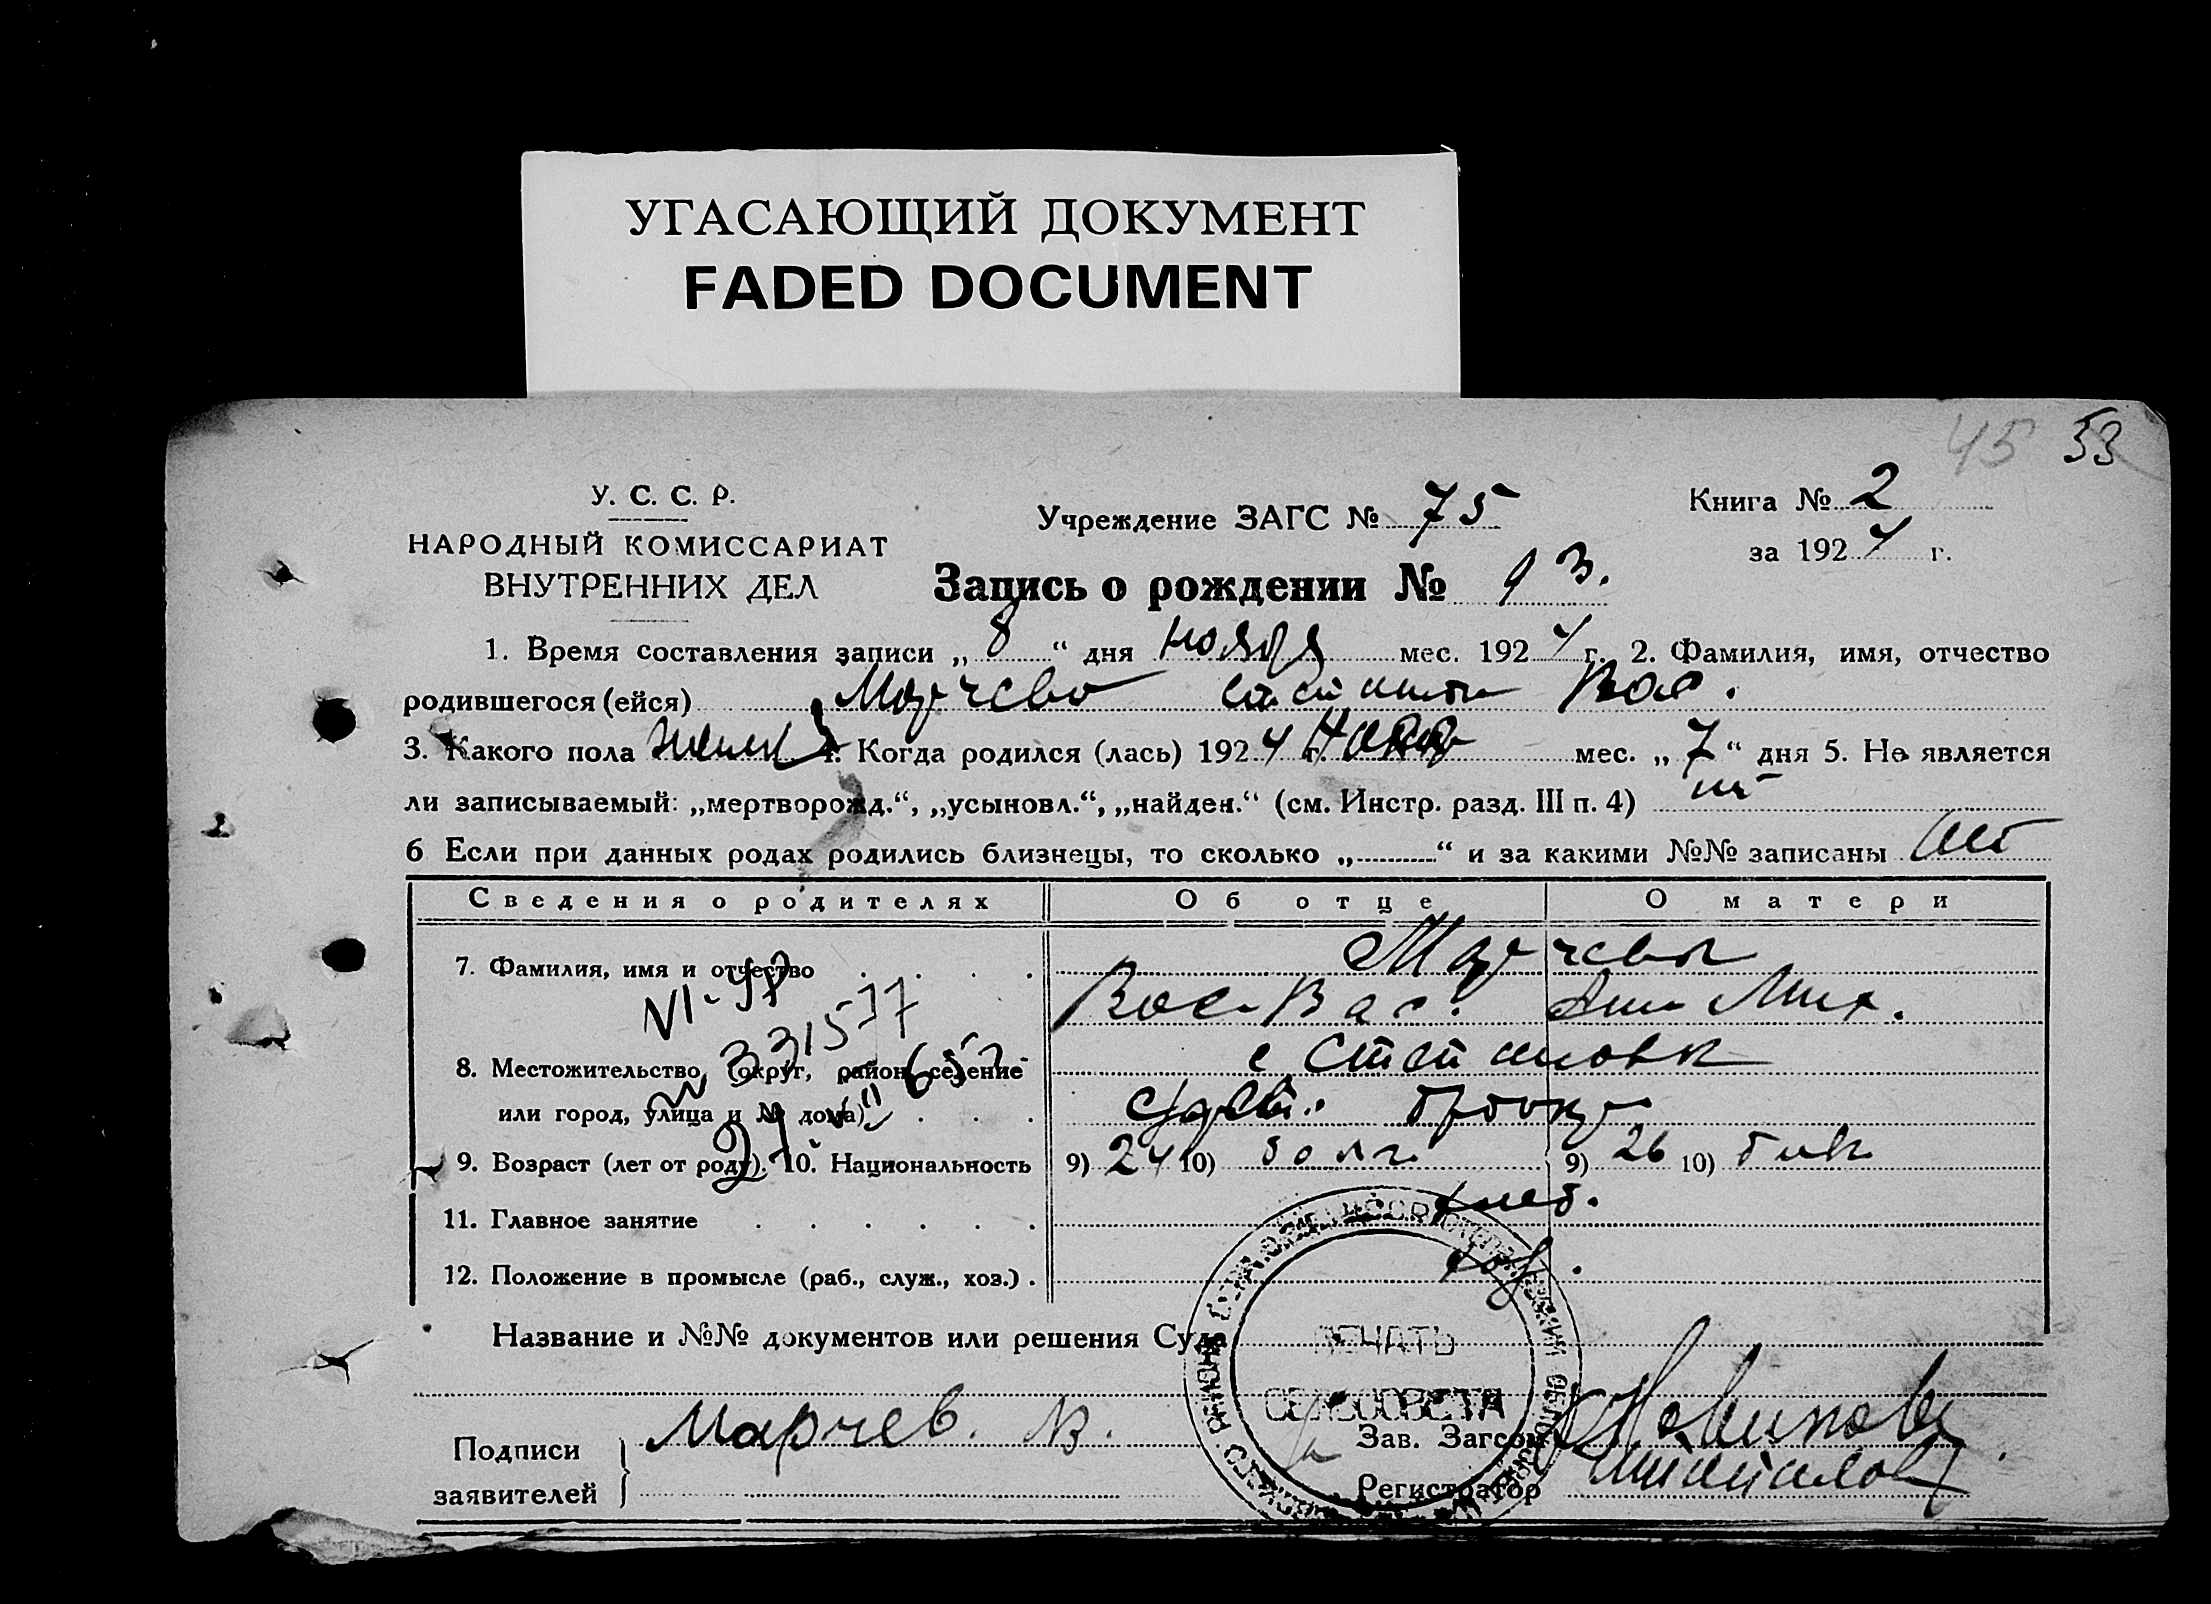 УГАСАЮЩИЙ ДОКУМЕНТ
FADED DOCUMENT
45 53
У. С. С. Р.
НАРОДНЫЙ КОМИССАРИАТ
ВНУТРЕННИХ ДЕЛ
Учреждение ЗАГС № 75
Книга № 2
за 1924 г.
Запись о рождении № 93.
1. Время составления записи „8“ дня ноября мес. 1924 г. 2. Фамилия, имя, отчество
родившегося (ейся) Вас.
3. Какого пола женск 4. Когда родился (лась) 1924 г. ноябр мес. „7“ дня 5. Не является
ли записываемый: „мертворожд.“, „усыновл.“, „найден.“ (см. Инстр. разд. III п. 4) нет
6 Если при данных родах родились близнецы, то сколько „ “ и за какими №№ записаны нет
Сведения о родителях Об отце О матери
7. Фамилия, имя и отчество
Вас. Вас. Анн Мих.
8. Местожительство (округ, район, селение
или город, улица и № дома)
9. Возраст (лет от роду). 10. Национальность 9) 24 10) болг. 9) 26 10) болг
11. Главное занятие хлеб.
12. Положение в промысле (раб., служ., хоз.) хоз.
Название и №№ документов или решения Суда
ПЕЧАТЬ
СЕЛЬСОВЕТА
Подписи
заявителей
Марчев. В.
Зав. Загсом
Регистратор